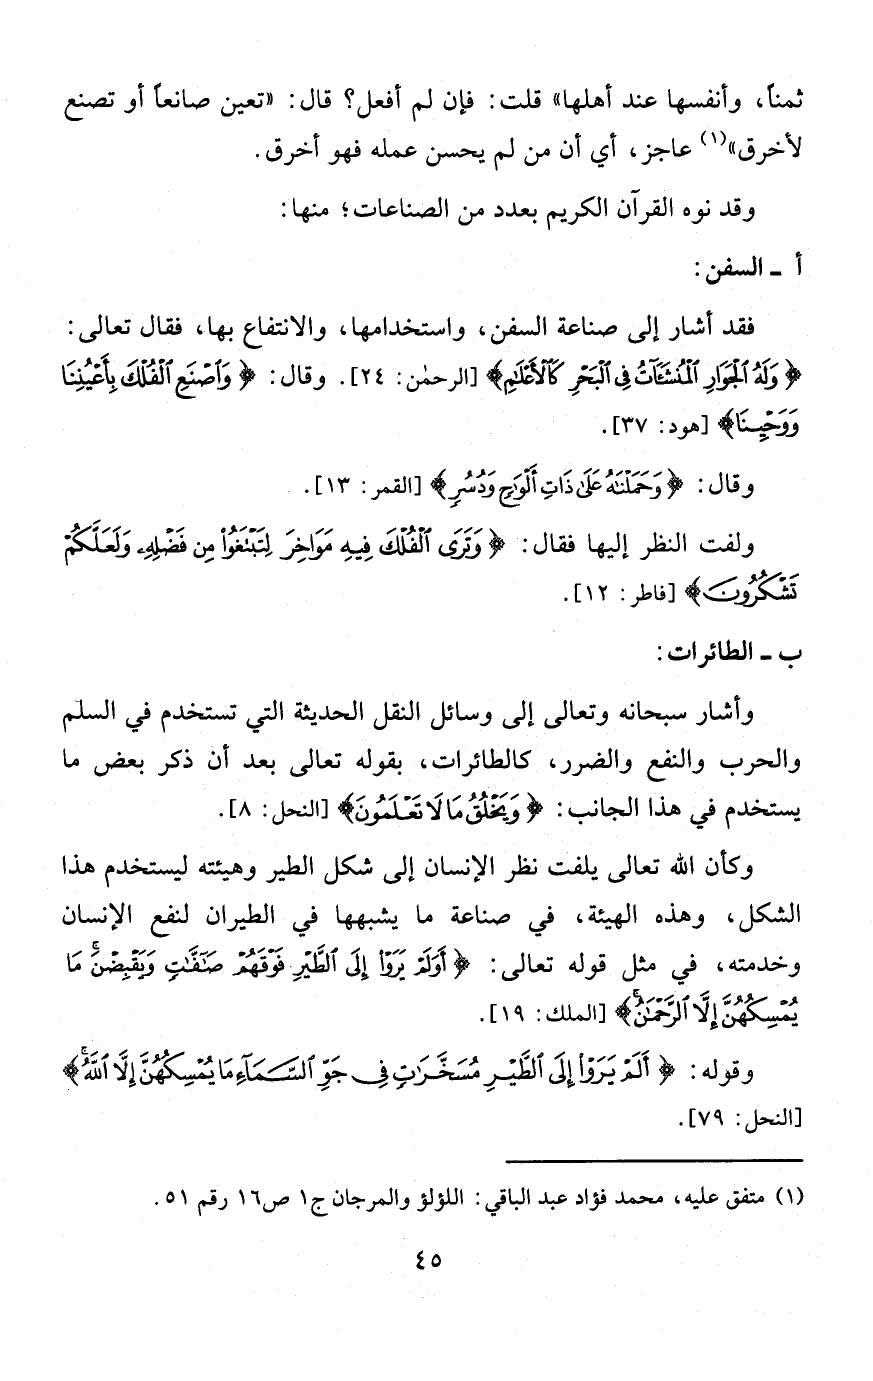 ثمناً، وأنفسها عند أهلها» قلت: فإن لم أفعل؟ قال: «تعين صانعاً أو تصنع
لأخرق»(١) عاجز، أي أن من لم يحسن عمله فهو أخرق.
وقد نوه القرآن الكريم بعدد من الصناعات؛ منها:
أ ـ السفن:
فقد أشار إلى صناعة السفن، واستخدامها، والانتفاع بها، فقال تعالى:
﴿وَلَهُ ٱلْجَوَارِ ٱلْمُنشَـَٔاتُ فِى ٱلْبَحْرِ كَٱلْأَعْلَـٰمِ﴾ [الرحمٰن: ٢٤]. وقال: ﴿وَٱصْنَعِ ٱلْفُلْكَ بِأَعْيُنِنَا
وَوَحْيِنَا﴾ [هود: ٣٧].
وقال: ﴿وَحَمَلْنَـٰهُ عَلَىٰ ذَاتِ أَلْوَٰحٍ وَدُسُرٍ﴾ [القمر: ١٣].
ولفت النظر إليها فقال: ﴿وَتَرَى ٱلْفُلْكَ فِيهِ مَوَاخِرَ لِتَبْتَغُوا۟ مِن فَضْلِهِۦ وَلَعَلَّكُمْ
تَشْكُرُونَ﴾ [فاطر: ١٢].
ب ـ الطائرات:
وأشار سبحانه وتعالى إلى وسائل النقل الحديثة التي تستخدم في السلم
والحرب والنفع والضرر، كالطائرات، بقوله تعالى بعد أن ذكر بعض ما
يستخدم في هذا الجانب: ﴿وَيَخْلُقُ مَا لَا تَعْلَمُونَ﴾ [النحل: ٨].
وكأن الله تعالى يلفت نظر الإنسان إلى شكل الطير وهيئته ليستخدم هذا
الشكل، وهذه الهيئة، في صناعة ما يشبهها في الطيران لنفع الإنسان
وخدمته، في مثل قوله تعالى: ﴿أَوَلَمْ يَرَوْا۟ إِلَى ٱلطَّيْرِ فَوْقَهُمْ صَـٰٓفَّـٰتٍ وَيَقْبِضْنَ ۚ مَا
يُمْسِكُهُنَّ إِلَّا ٱلرَّحْمَـٰنُ ۚ﴾ [الملك: ١٩].
وقوله: ﴿أَلَمْ يَرَوْا۟ إِلَى ٱلطَّيْرِ مُسَخَّرَٰتٍ فِى جَوِّ ٱلسَّمَآءِ مَا يُمْسِكُهُنَّ إِلَّا ٱللَّهُ ۚ﴾
[النحل: ٧٩].
(١) متفق عليه، محمد فؤاد عبد الباقي: اللؤلؤ والمرجان ج١ ص١٦ رقم ٥١.
٤٥